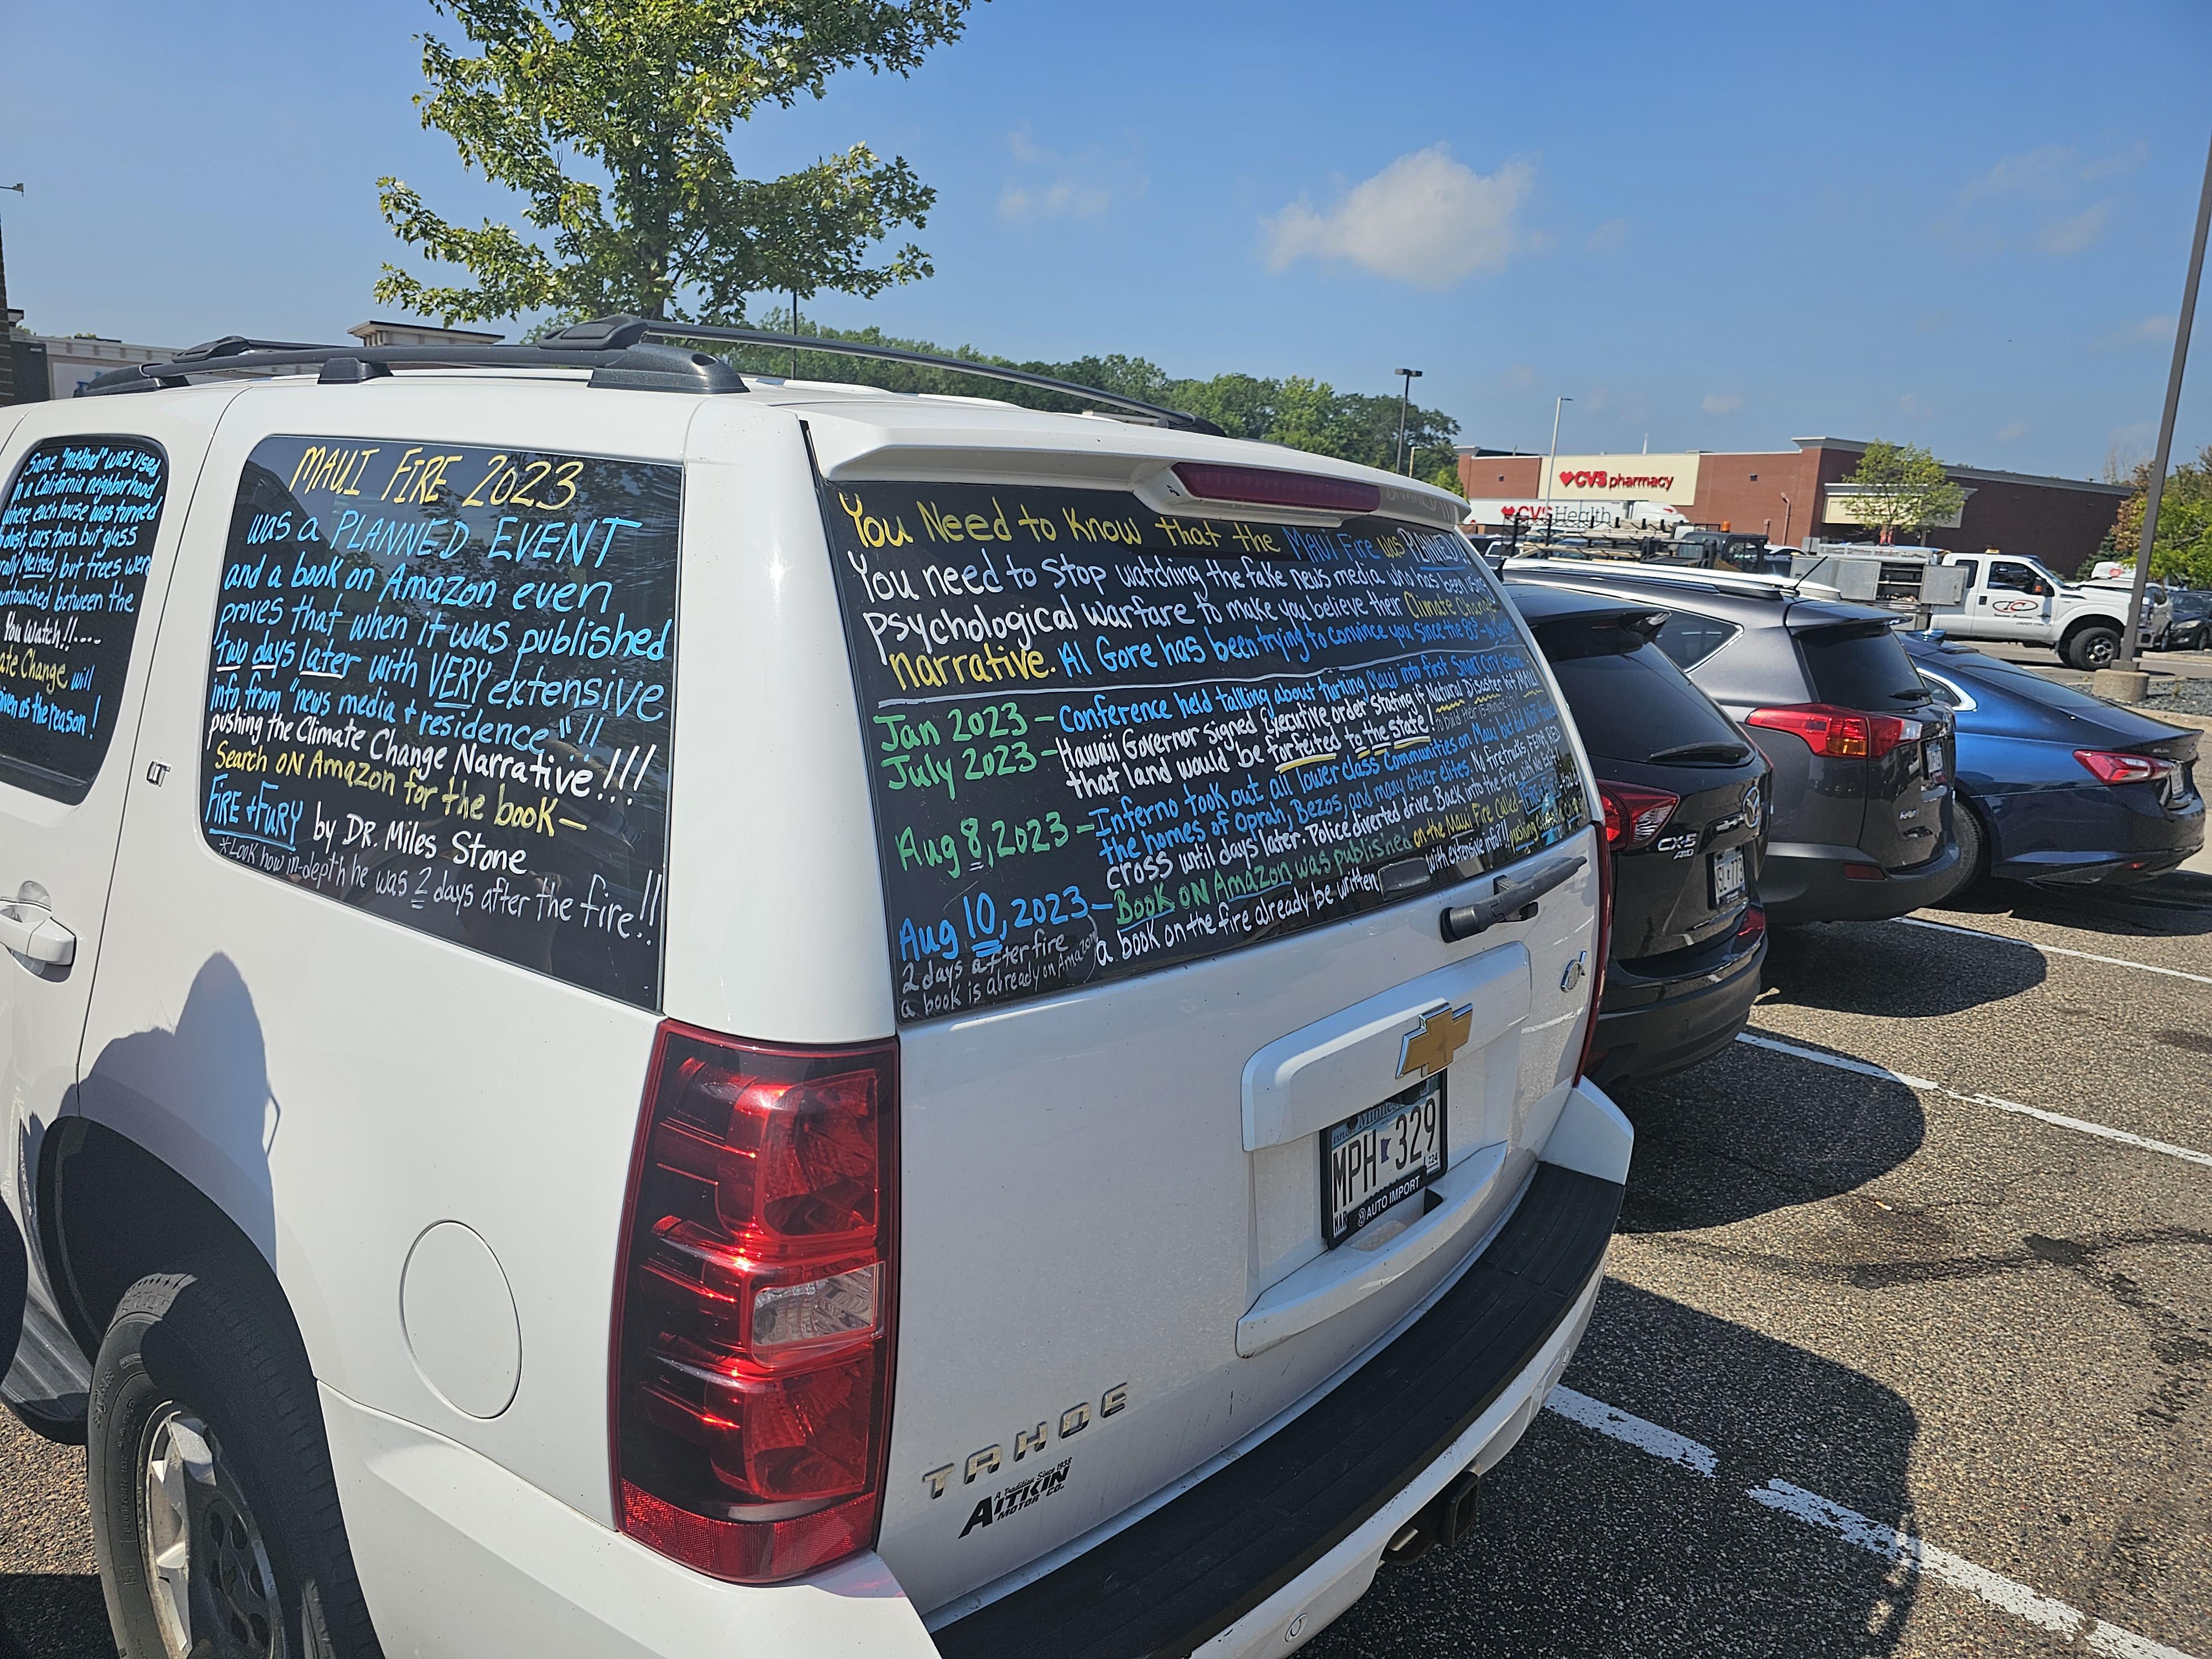 Same "method" was used
in a California neighborhood
where each house was turned
dust, cars torch but glass
Melted, but trees were
untouched between the
You Watch!!....
Change will
as the reason!
MAUI FIRE 2023
was a PLANNED EVENT
and a book on Amazon even
proves that when it was published
two days later with VERY extensive
info from "news media + residence"!!
pushing the Climate Change Narrative!!!
Search ON Amazon for the book—
FIRE + FURY by DR. Miles Stone
*Look how in-depth he was 2 days after the fire!!
You Need to Know that the Maui Fire was PLANNED
You need to stop watching the fake news media who has been using
psychological warfare to make you believe their Climate Change
narrative. Al Gore has been trying to convince you since the 80's
Jan 2023 – Conference held talking about turning Maui into first Smart City island
July 2023 – Hawaii Governor signed Executive order stating if Natural Disaster hit Maui
that land would be forfeited to the state!
Aug 8, 2023 – Inferno took out all lower class Communities on Maui but did not touch
the homes of Oprah, Bezos, and many other elites.
cross until days later. Police diverted drive Back into the fire
Aug 10, 2023 – Book ON Amazon was published on the Maui Fire Called
2 days after fire
a book is already on Amazon
a book on the fire already be written with extensive info?!!
CVS pharmacy
CVS Health
LT
CX-5
AWD
TAHOE
A Tradition Since 1938
AITKIN
MOTOR CO.
MPH 329
AUTO IMPORT